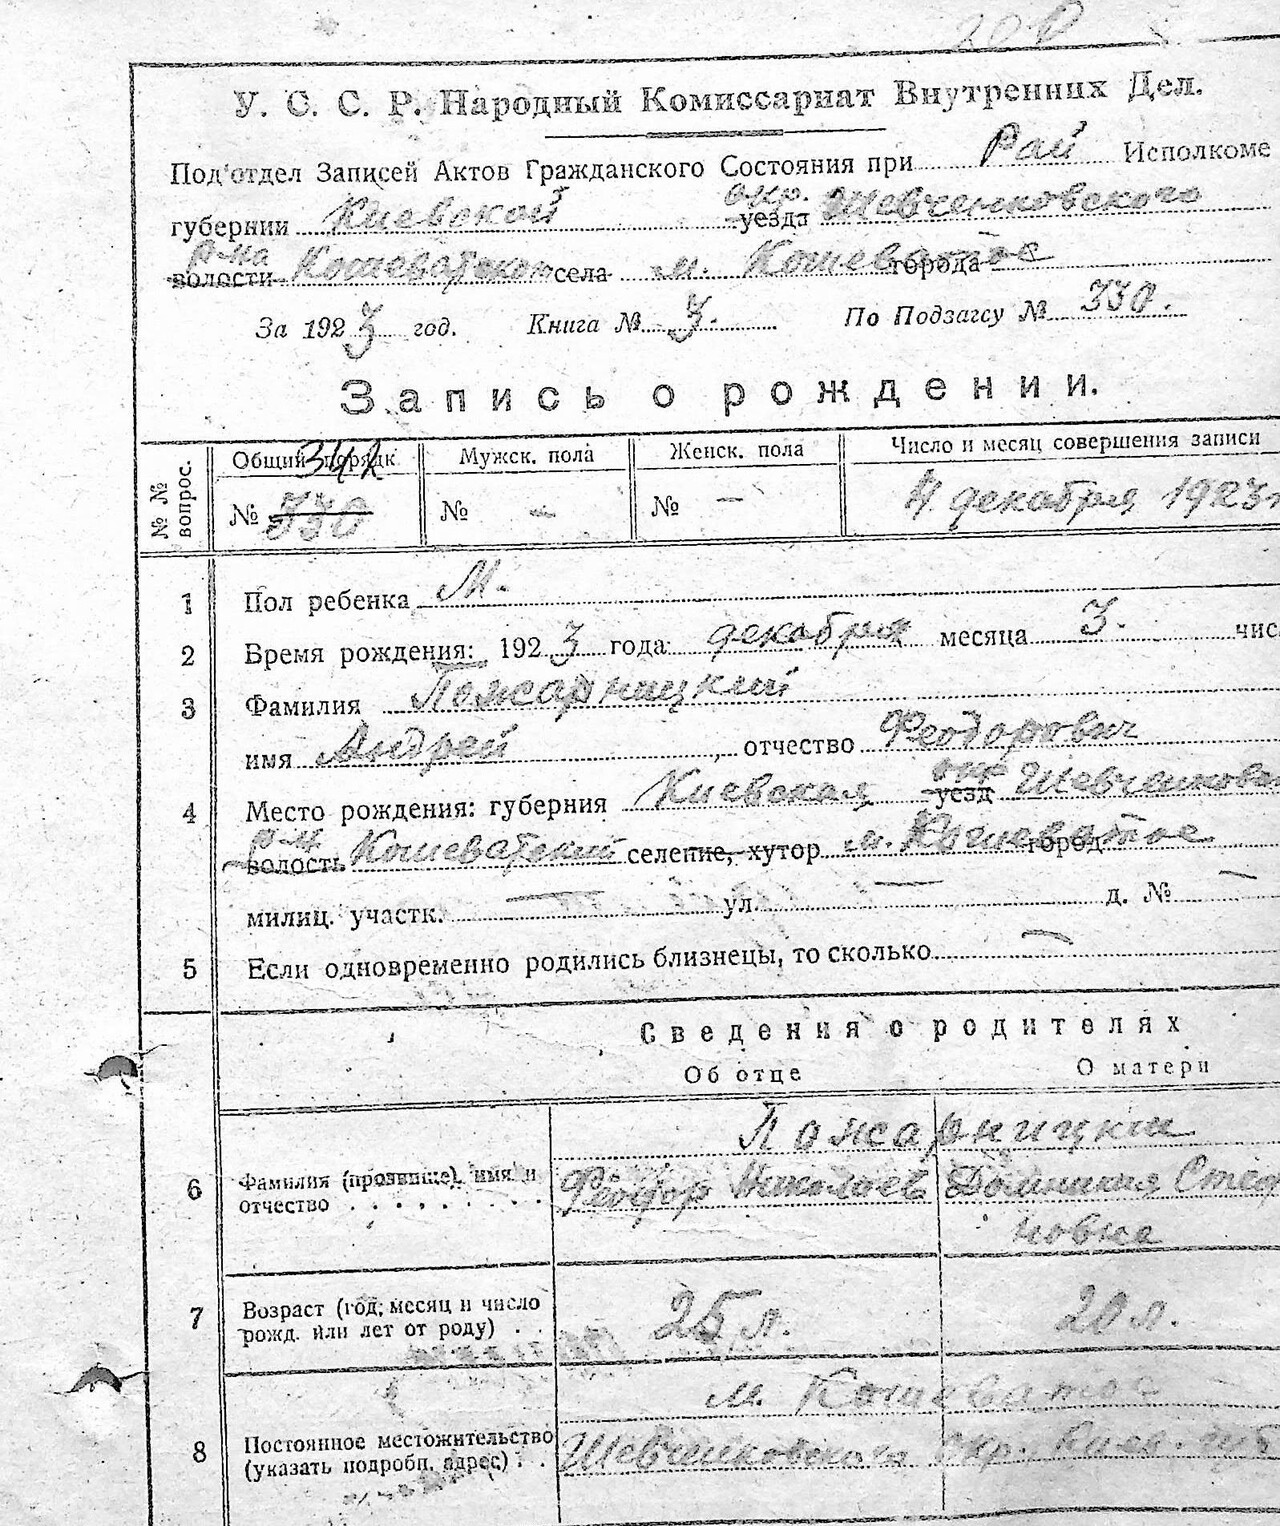 У. С. С. Р. Народный Комиссариат Внутренних Дел.
Под'отдел Записей Актов Гражданского Состояния при Рай Исполкоме
губернии Киевской окр. уезда Шевченковского
р-на волости Кошеватского села м. Кошеватое города
За 1923 год. Книга № 3. По Подзагсу № 330.
Запись о рождении.
№ № вопрос.
Общий порядк 342 Мужск. пола Женск. пола Число и месяц совершения записи
№ 330 № - № - 4 декабря 1923 г
1 Пол ребенка М.
2 Время рождения: 1923 года декабря месяца 3. чис
3 Фамилия Пожарницкий
имя Андрей, отчество Феодорович
4 Место рождения: губерния Киевская окр уезд Шевченков
р-н волость Кошеватский селение, хутор м. Кошеватое город
милиц. участк. — ул. — д. № —
5 Если одновременно родились близнецы, то сколько —
Сведения о родителях
Об отце О матери
Пожарницкие
6 Фамилия (прозвище), имя и отчество Феодор Николаев Домникия Стефановна
7 Возраст (год, месяц и число рожд. или лет от роду) 25 л. 20 л.
м. Кошеватое
8 Постоянное местожительство (указать подробн. адрес) Шевченковского окр. Киев. губ